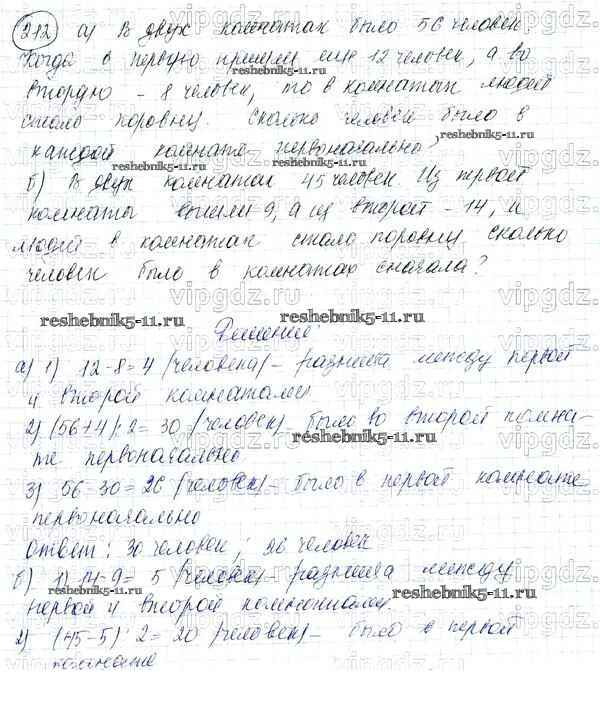 212 а) В двух комнатах было 56 человек
Когда в первую пришли еще 12 человек, а во
вторую - 8 человек, то в комнатах людей
стало поровну. Сколько человек было в
каждой комнате первоначально?
б) В двух комнатах 45 человек. Из первой
комнаты вышли 9, а из второй - 14, и
людей в комнатах стало поровну. Сколько
человек было в комнатах сначала?
Решение:
а) 1) 12-8=4 (человека) - разница между первой
и второй комнатами
2) (56+4):2=30 (человек) - было во второй комна-
те первоначально
3) 56-30=26 (человек) - было в первой комнате
первоначально
Ответ: 30 человек; 26 человек
б) 1) 14-9=5 (человек) - разница между
первой и второй комнатами.
2) (45-5):2=20 (человек) - было в первой
комнате
reshebnik5-11.ru
reshebnik5-11.ru
reshebnik5-11.ru
reshebnik5-11.ru
reshebnik5-11.ru
reshebnik5-11.ru
reshebnik5-11.ru
reshebnik5-11.ru
vipgdz.ru